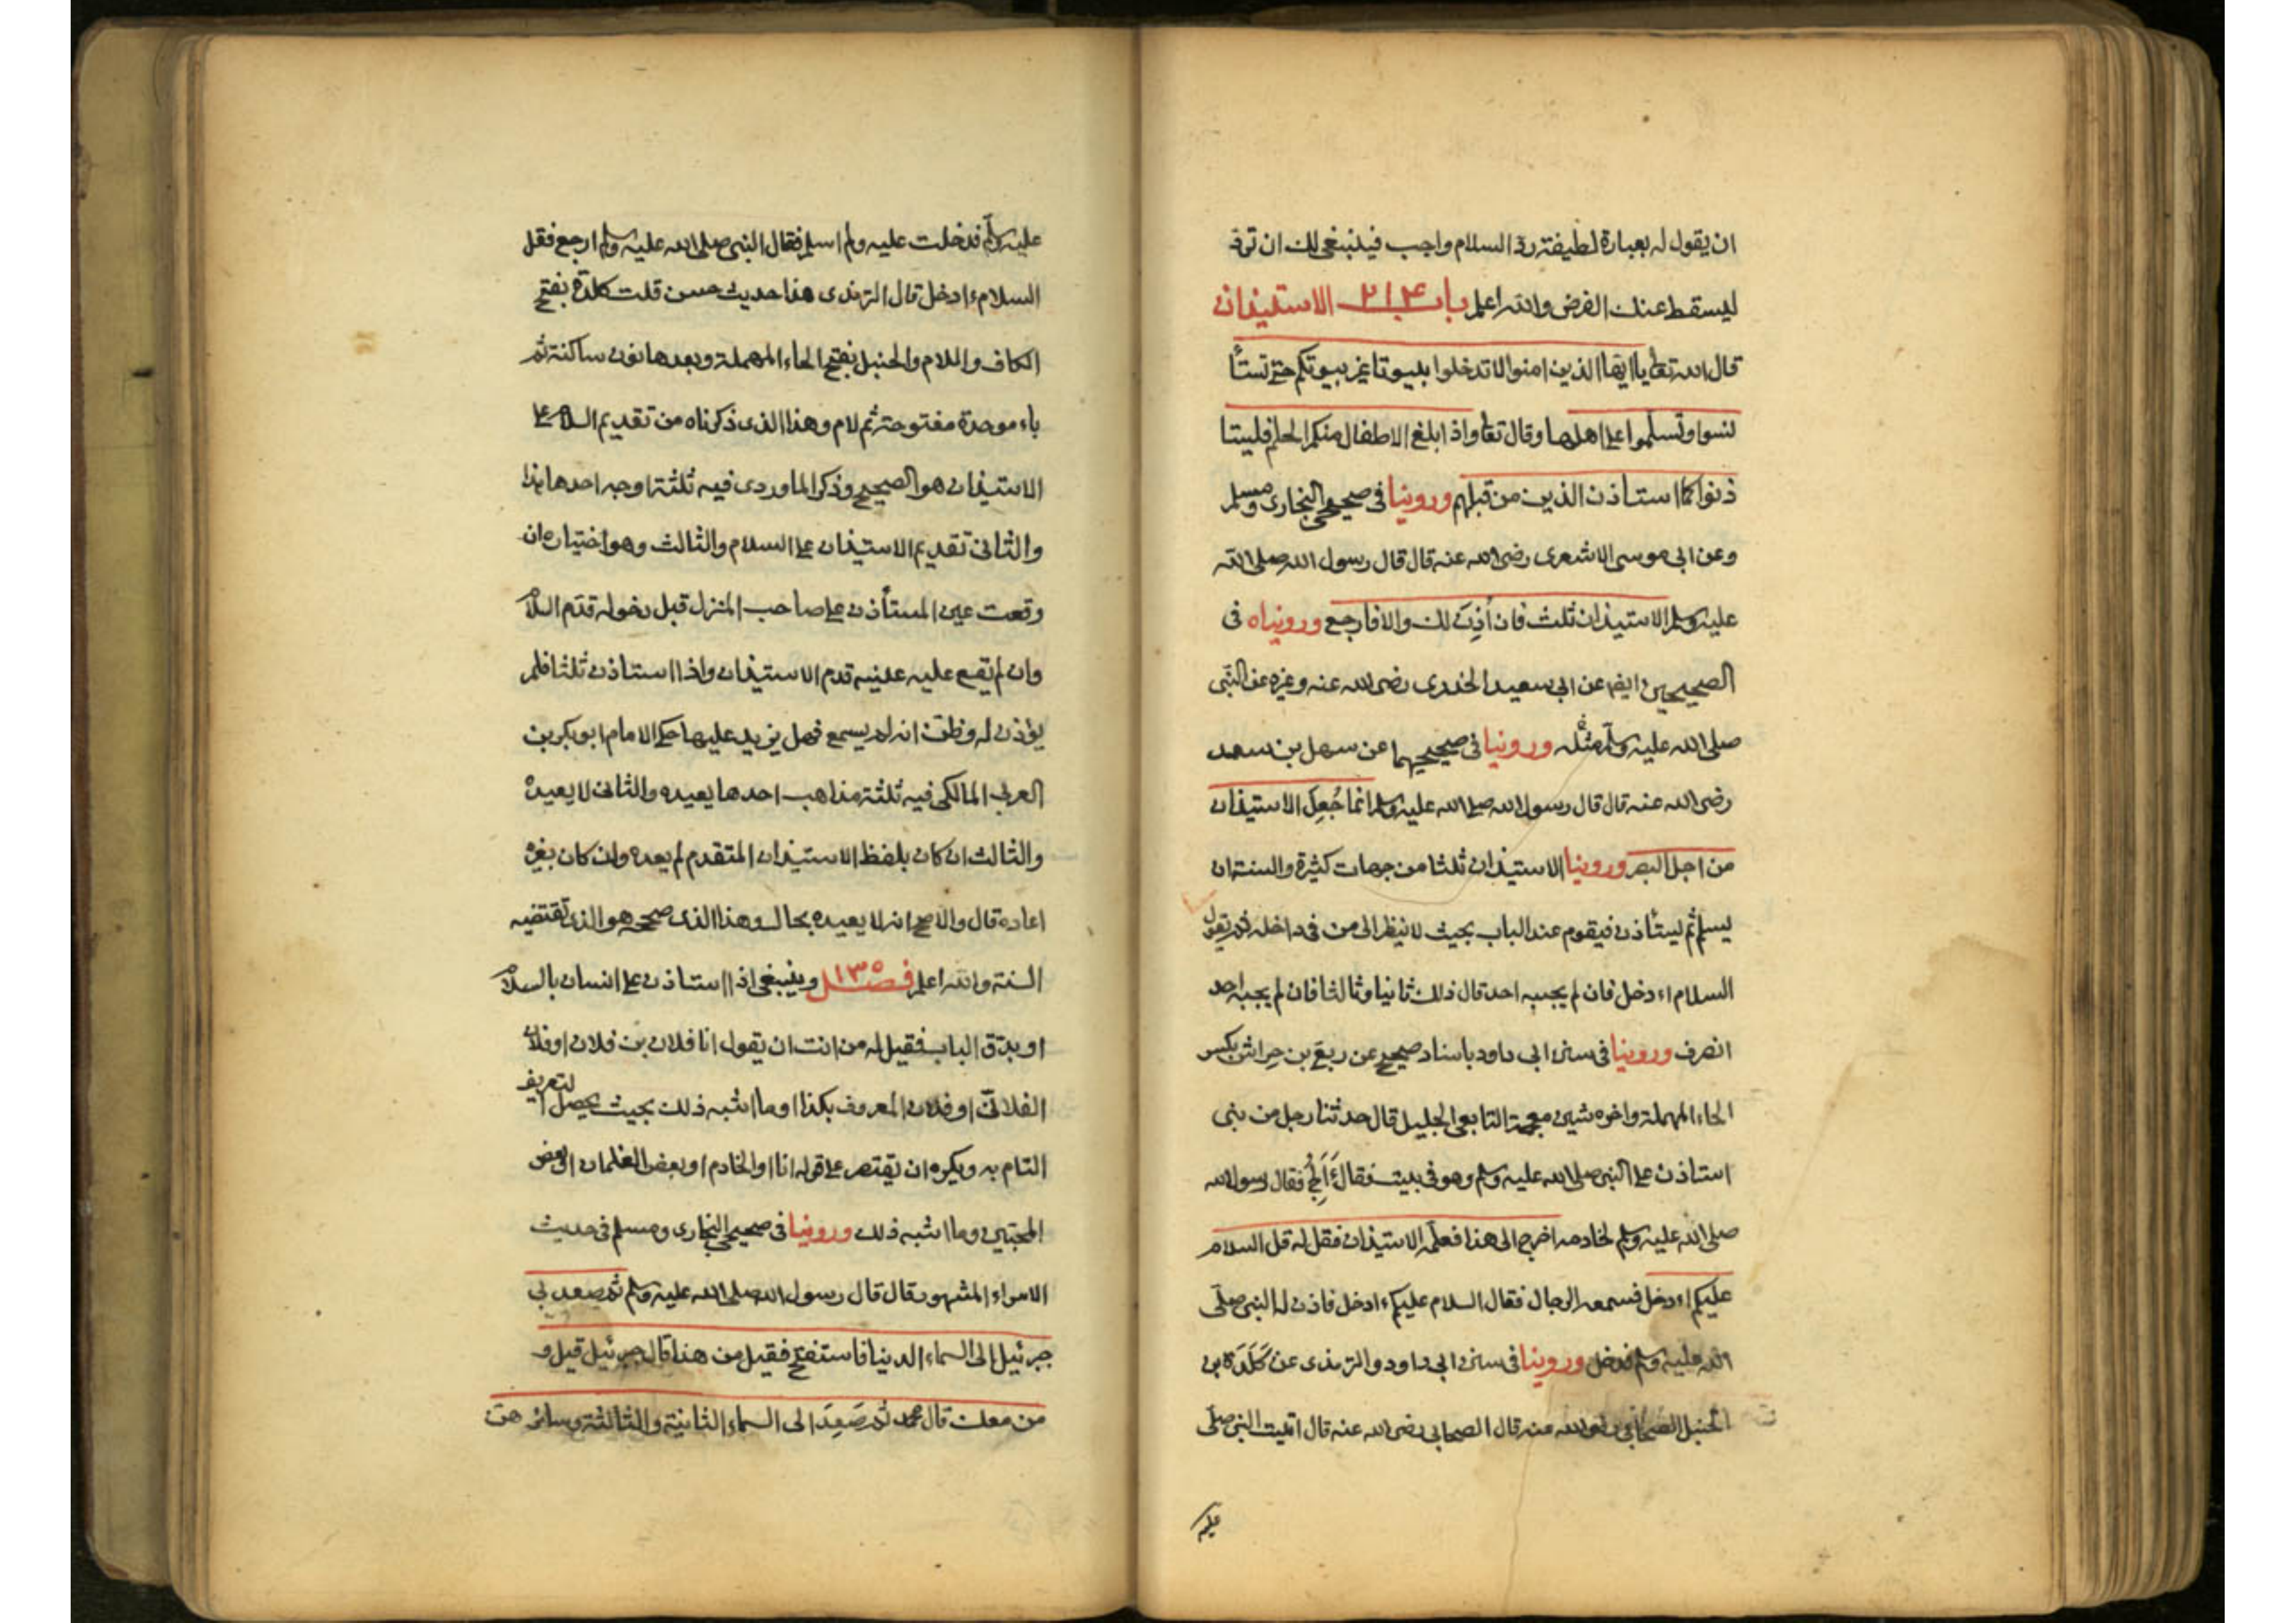 ان يقول له بعبارة لطيفة رد السلام واجب فينبغى لك ان ترد
ليسقط عنك الفرض والله اعلم باب ٢١٤ الاستيذان
قال الله تعا يا ايها الذين امنوا لا تدخلوا بيوتا غير بيوتكم حتى تستأ
نسوا وتسلموا على اهلها وقال تعا واذا بلغ الاطفال منكم الحلم فليستا
ذنوا كما استاذن الذين من قبلهم وروينا فى صحيحى البخارى ومسلم
وعن ابى موسى الاشعرى رضى الله عنه قال قال رسول الله صلى الله
عليه وسلم الاستيذان ثلث فان أذن لك والا فارجع وروينا فى
الصحيحين ايضا عن ابى سعيد الخدرى رضى الله عنه وغيره عن النبى
صلى الله عليه وسلم مثله وروينا فى صحيحيهما عن سهل بن سعد
رضى الله عنه قال قال رسول الله صلى الله عليه وسلم انما جُعِل الاستيذان
من اجل البصر وروينا الاستيذان ثلثا من جهات كثيرة والسنة ان
يسلم ثم يستأذن فيقوم عند الباب بحيث لا ينظر الى من فى داخله ثم يقول
السلام ءادخل فان لم يجبه احد قال ذلك ثانيا وثالثا فان لم يجبه احد
انصرف وروينا فى سنن ابى داود باسناد صحيح عن ربعى بن حراش بكسر
الحاء المهملة واخره شين معجمة التابعى الجليل قال حدثنا رجل من بنى
استاذن على النبى صلى الله عليه وسلم وهو فى بيت فقال أَأَلِجُ فقال رسول الله
صلى الله عليه وسلم لخادمه اخرج الى هذا فعلمه الاستيذان فقل له قل السلام
عليكم ءادخل فسمعه الرجال فقال السلام عليكم ءادخل فاذن له النبى صلى
الله عليه وسلم فدخل وروينا فى سنن ابى داود والترمذى عن كَلَدَة بن
الحنبل الصحابى رضى الله عنه قال الصحابى رضى الله عنه قال اتيت النبى صلى
عليه
عليه وسلم فدخلت عليه ولم اسلم فقال النبى صلى الله عليه وسلم ارجع فقل
السلام ءادخل قال الترمذى هذا حديث حسن قلت كلدة بفتح
الكاف واللام والحنبل بفتح الحاء المهملة وبعدها نون ساكنة ثم
باء موحدة مفتوحة ثم لام وهذا الذى ذكرناه من تقديم السلام على
الاستيذان هو الصحيح وذكر الماوردى فيه ثلثة اوجه احدها هذا
والثانى تقديم الاستيذان على السلام والثالث وهو اختياره ان
وقعت عين المستأذن على صاحب المنزل قبل دخوله قدم السلام
وان لم تقع عليه عينه قدم الاستيذان واذا استاذن ثلثا فلم
يؤذن له وظن انه لم يسمع فهل يزيد عليها حكى الامام ابو بكر بن
العربى المالكى فيه ثلثة مذاهب احدها يعيده والثانى لا يعيده
والثالث ان كان بلفظ الاستيذان المتقدم لم يعده وان كان بغيره
اعاده قال والاصح انه لا يعيده بحال وهذا الذى صححه هو الذى تقتضيه
السنة والله اعلم فصل ١٣٥ وينبغى اذا استاذن على انسان بالسلام
او بدق الباب فقيل له من انت ان يقول انا فلان بن فلان او فلان
الفلانى او فلان المعروف بكذا او ما اشبه ذلك بحيث يحصل التعريف
التام به ويكره ان يقتصر على قوله انا او الخادم او بعض الغلمان او بعض
المحبين وما اشبه ذلك وروينا فى صحيحى البخارى ومسلم فى حديث
الاسراء المشهور قال قال رسول الله صلى الله عليه وسلم ثم صعد بى
جبرئيل الى السماء الدنيا فاستفتح فقيل من هذا قال جبرئيل قيل و
من معك قال محمد ثم صَعِدَ الى السماء الثانية والثالثة وسائرهن